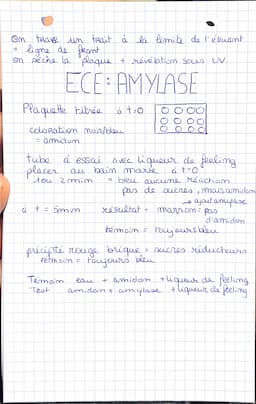 On trace un trait à la limite de l'éluant
= ligne de front
on sèche la plaque + révélation sous UV
ECE : AMYLASE
Plaquette titrée à t=0
coloration noir/bleu
= amidon
tube à essai avec liqueur de feeling
placer au bain marie à t=0
1 ou 2 min = bleu aucune réaction
pas de sucres, mais amidon
→ ajout amylase
à t = 5min résultat = marron : pas
d'amidon
témoin = toujours bleu
précipité rouge brique = sucres réducteurs
témoin = toujours bleu
Témoin eau + amidon + liqueur de feeling
Test amidon + amylase + liqueur de feeling